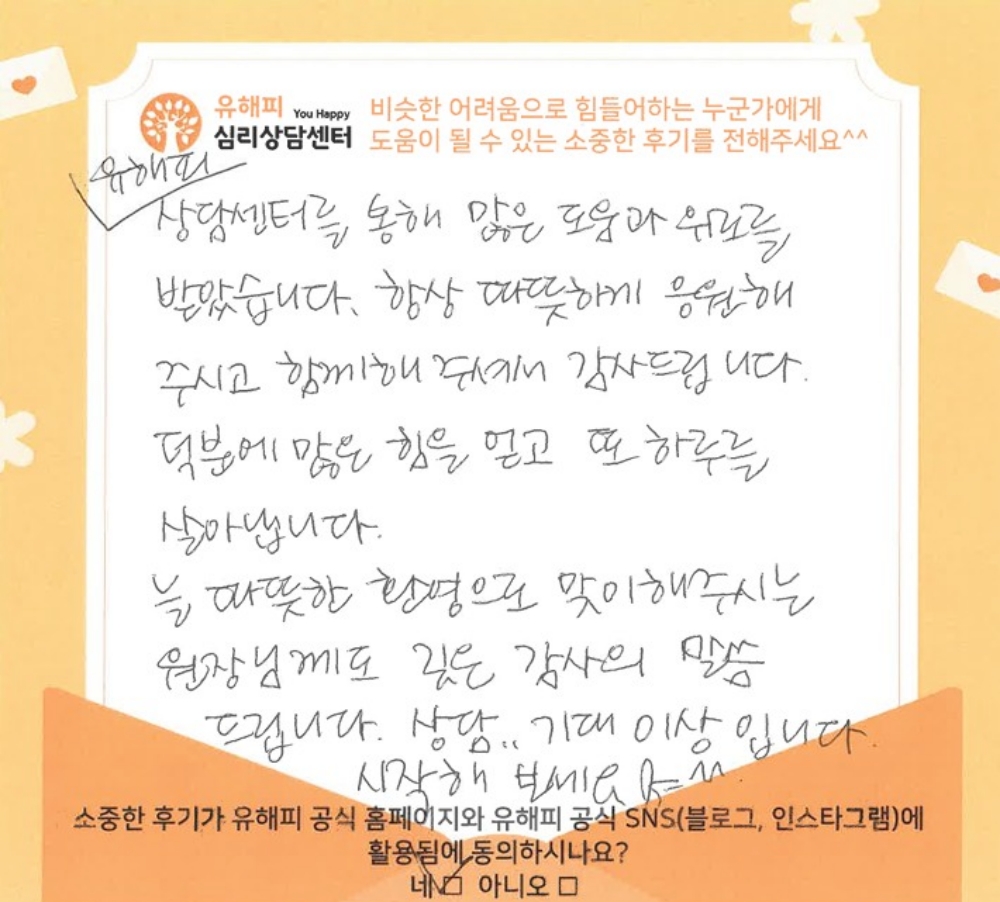 유해피 You Happy
심리상담센터
비슷한 어려움으로 힘들어하는 누군가에게
도움이 될 수 있는 소중한 후기를 전해주세요^^
유해피
상담센터를 통해 많은 도움과 위로를
받았습니다. 항상 따뜻하게 응원해
주시고 함께해 주셔서 감사드립니다.
덕분에 많은 힘을 얻고 또 하루를
살아냅니다.
늘 따뜻한 환영으로 맞이해주시는
원장님께도 깊은 감사의 말씀
드립니다. 상담.. 기대 이상입니다.
시작해 보세요
소중한 후기가 유해피 공식 홈페이지와 유해피 공식 SNS(블로그, 인스타그램)에
활용됨에 동의하시나요?
네 □ 아니오 □